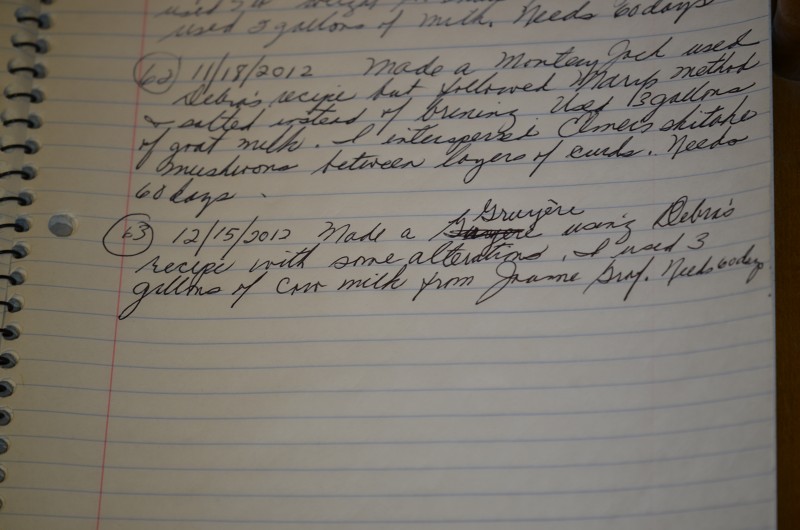 used 3 gallons of milk. Needs 60 days
62 11/18/2012 Made a Monterey Jack used
Debra's recipe but followed Mary's method
& salted instead of brining. Used 3 gallons
of goat milk. I interspersed Elmer's shitake
mushrooms between layers of curds. Needs
60 days.
63 12/15/2012 Made a Gruyère using Debra's
recipe with some alterations. I used 3
gallons of cow milk from Joanne Graf. Needs 60 days